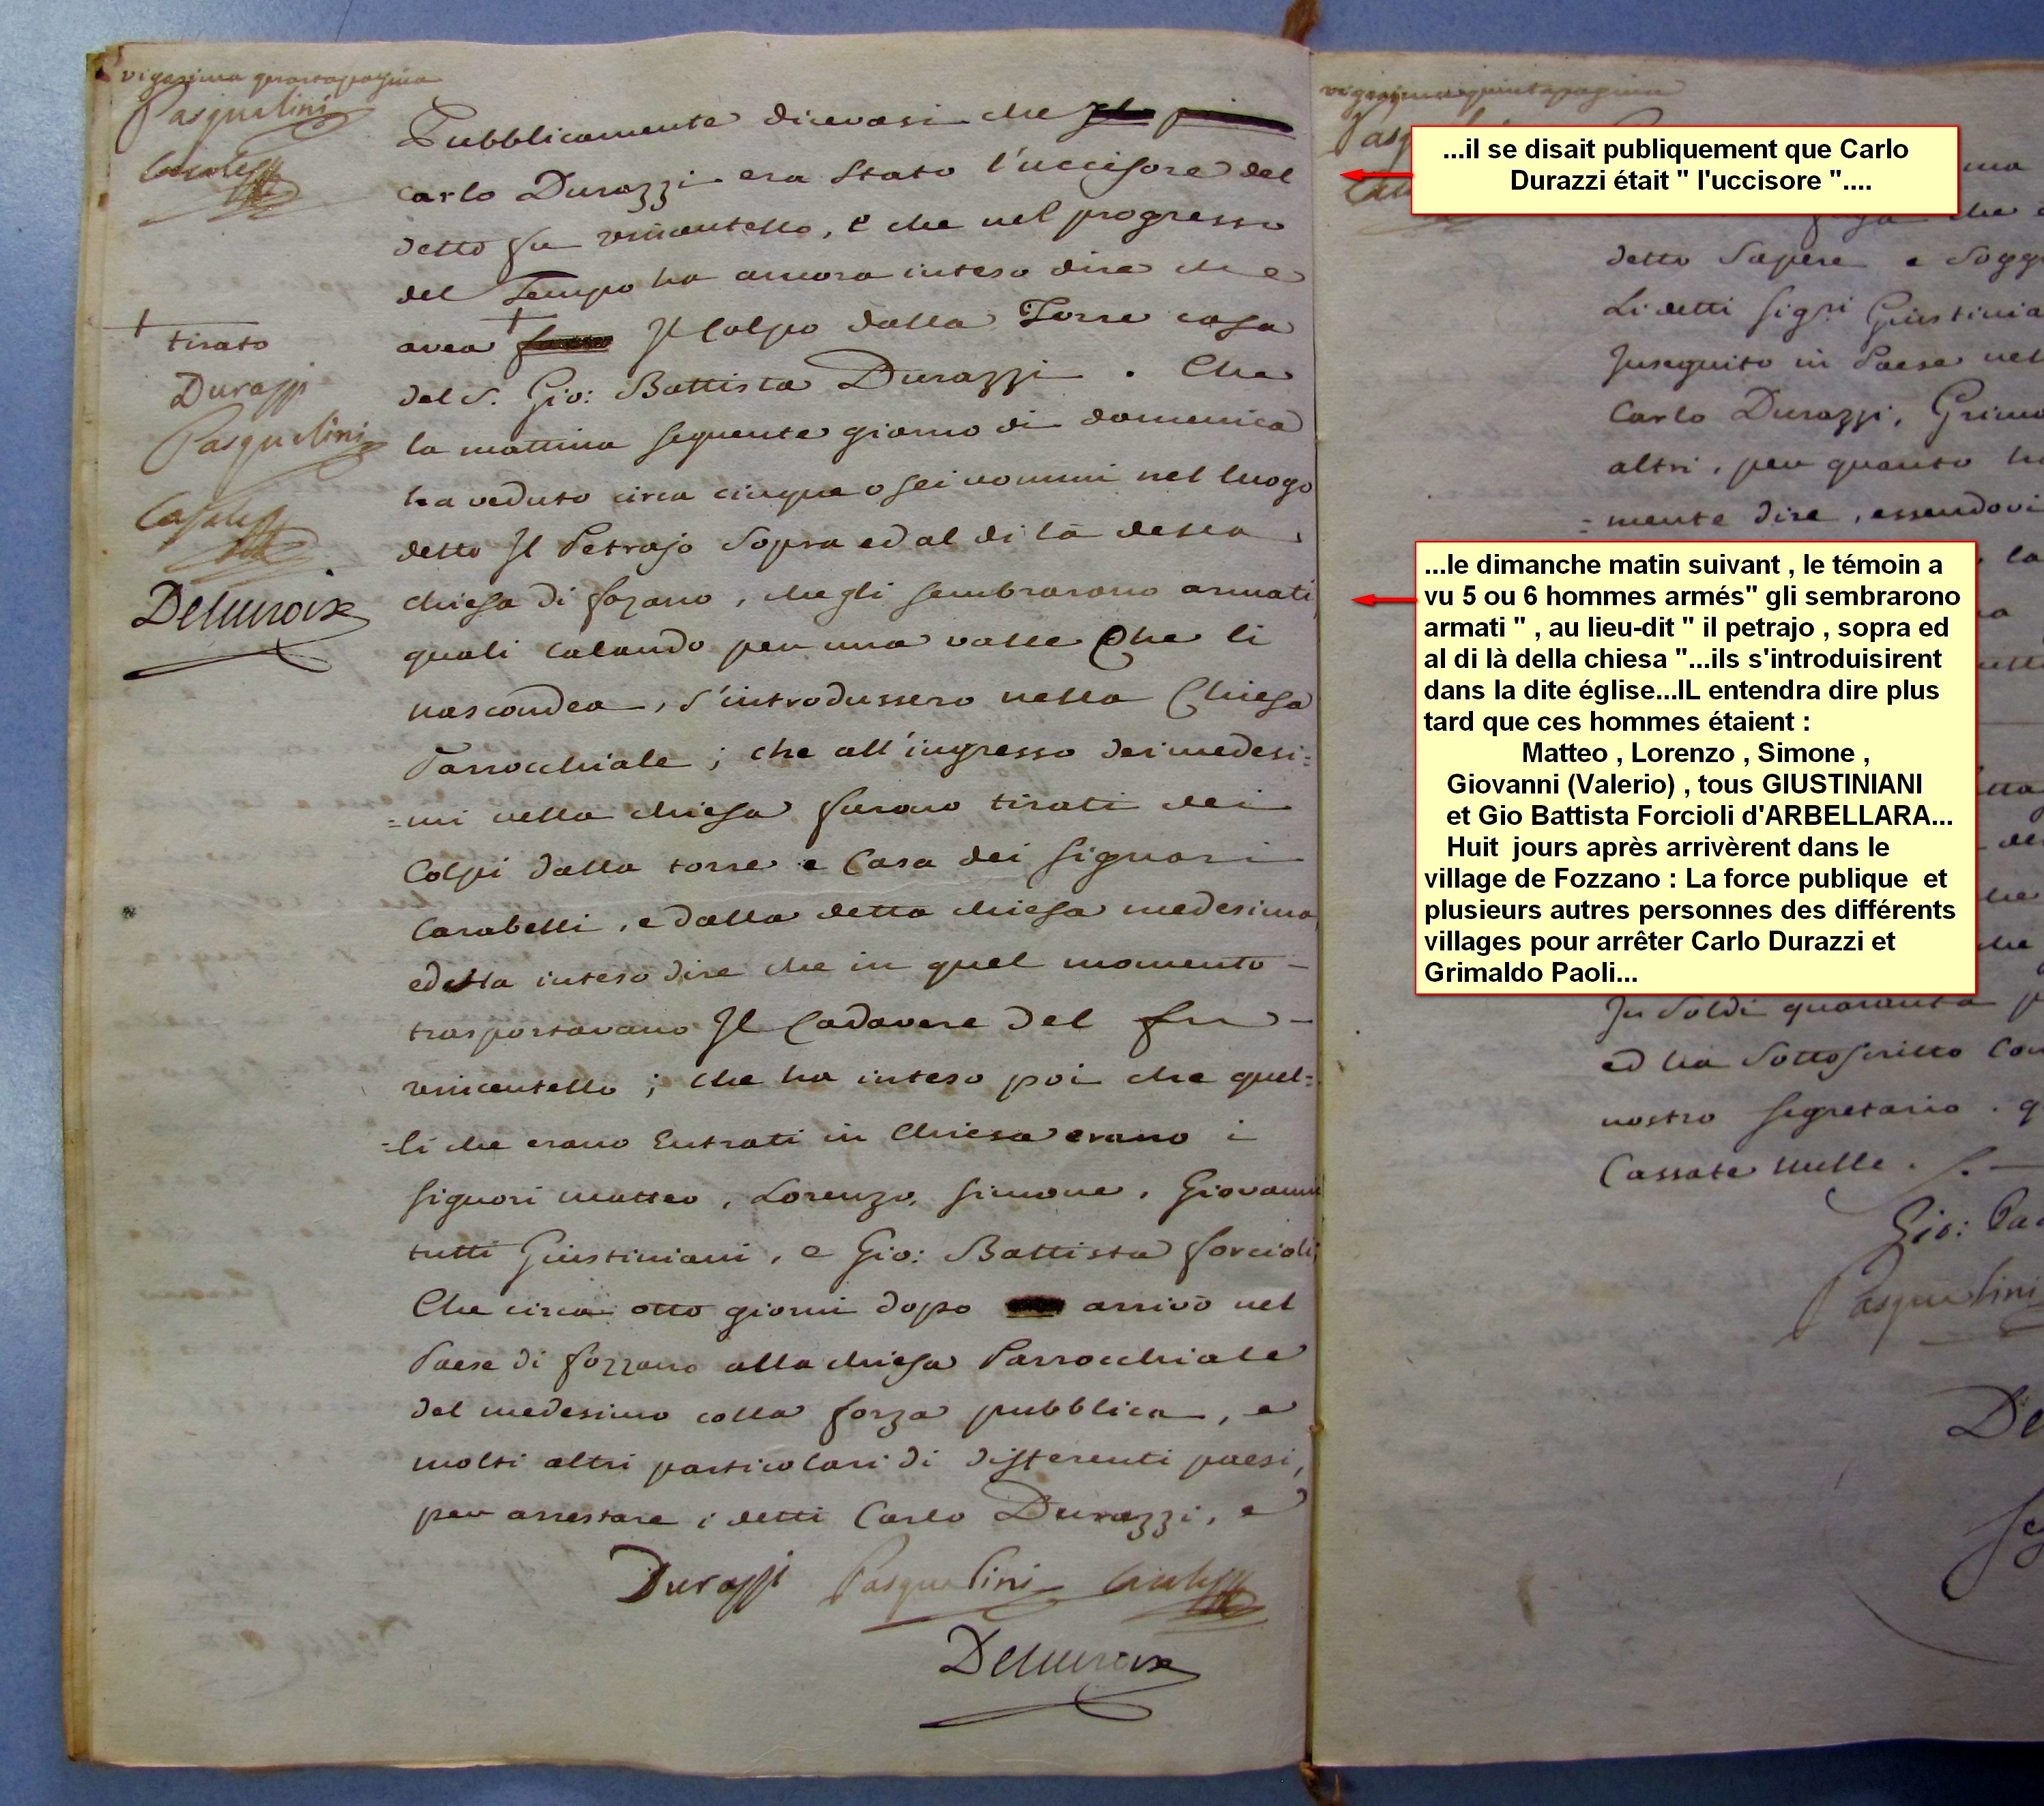 vigesima quarta pagina
Pasqualini
Pubblicamente dicevasi che
Carlo Durazzi era stato l'uccisore del
detto fu vincentello, e che nel progresso
del Tempo ha ancora inteso dire che
avea + Il Colpo dalla Torre casa
del S. Gio: Battista Durazzi. Che
la mattina seguente giorno di domenica
ha veduto circa cinque o sei uomini nel luogo
detto Il Petrajo sopra ed al di là della
chiesa di fozano, che gli sembrarono armati,
quali calando per una valle Che li
nascondea, s'introdussero nella Chiesa
Parrocchiale; che all'ingresso dei medesi=
=mi nella chiesa furono tirati dei
Colpi dalla torre e Casa dei Signori
Carabelli, e dalla detta chiesa medesima
ed ha inteso dire che in quel momento
trasportavano Il Cadavere del fu
vincentello; che ha inteso poi che quel=
=li che erano Entrati in Chiesa erano i
Signori matteo, Lorenzo, Simone, Giovanni
tutti Giustiniani, e Gio: Battista forcioli,
Che circa otto giorni dopo arrivò nel
Paese di fozzano alla chiesa Parrocchiale
del medesimo colla forza pubblica, e
molti altri particolari di differenti paesi,
per arrestare i detti Carlo Durazzi, e
+
tirato
Durazzi
Pasqualini
Durazzi Pasqualini
vigesima quinta pagina
detto Sapere e
Li detti Sigri
Inseguito in Paese nel
Carlo Durazzi,
altri, per quanto
=mente dire, essendovi
In Soldi quaranta
ed ha Sottoscritto
nostro Segretario.
Cassate nulle.
Gio:
Pasqualini
...il se disait publiquement que Carlo
Durazzi était " l'uccisore "....
...le dimanche matin suivant , le témoin a
vu 5 ou 6 hommes armés" gli sembrarono
armati " , au lieu-dit " il petrajo , sopra ed
al di là della chiesa "...ils s'introduisirent
dans la dite église...IL entendra dire plus
tard que ces hommes étaient :
Matteo , Lorenzo , Simone ,
Giovanni (Valerio) , tous GIUSTINIANI
et Gio Battista Forcioli d'ARBELLARA...
Huit jours après arrivèrent dans le
village de Fozzano : La force publique et
plusieurs autres personnes des différents
villages pour arrêter Carlo Durazzi et
Grimaldo Paoli...